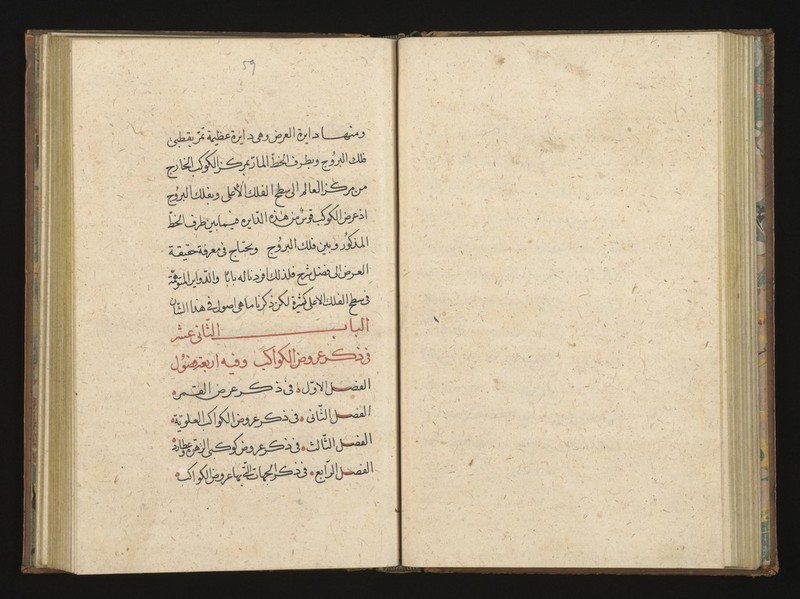 ٥٩
ومنها دايرة العرض وهى دايرة عظيمة تمر بقطبى
فلك البروج وبطرف الخط المار بمركز الكوكب الخارج
من مركز العالم الى سطح الفلك الاعلى وبفلك البروج
اذ عرض الكوكب قوس من هذه الدايرة فيما بين طرف الخط
المذكور وبين فلك البروج ويحتاج فى معرفة حقيقة
العرض الى فضل شرح فلذلك افردنا له بابًا والدواير المتوهمة
فى سطح الفلك الاعلى كثيرة لكن ذكرنا ما هى اصول فى هذا الشان
الباب الثانى عشر
فى ذكر عروض الكواكب وفيه اربعة فصول
الفصل الاول فى ذكر عرض القمر
الفصل الثانى فى ذكر عروض الكواكب العلوية
الفصل الثالث فى ذكر عروض كوكبى الزهرة وعطارد
الفصل الرابع فى ذكر الجهات التى بها عروض الكواكب